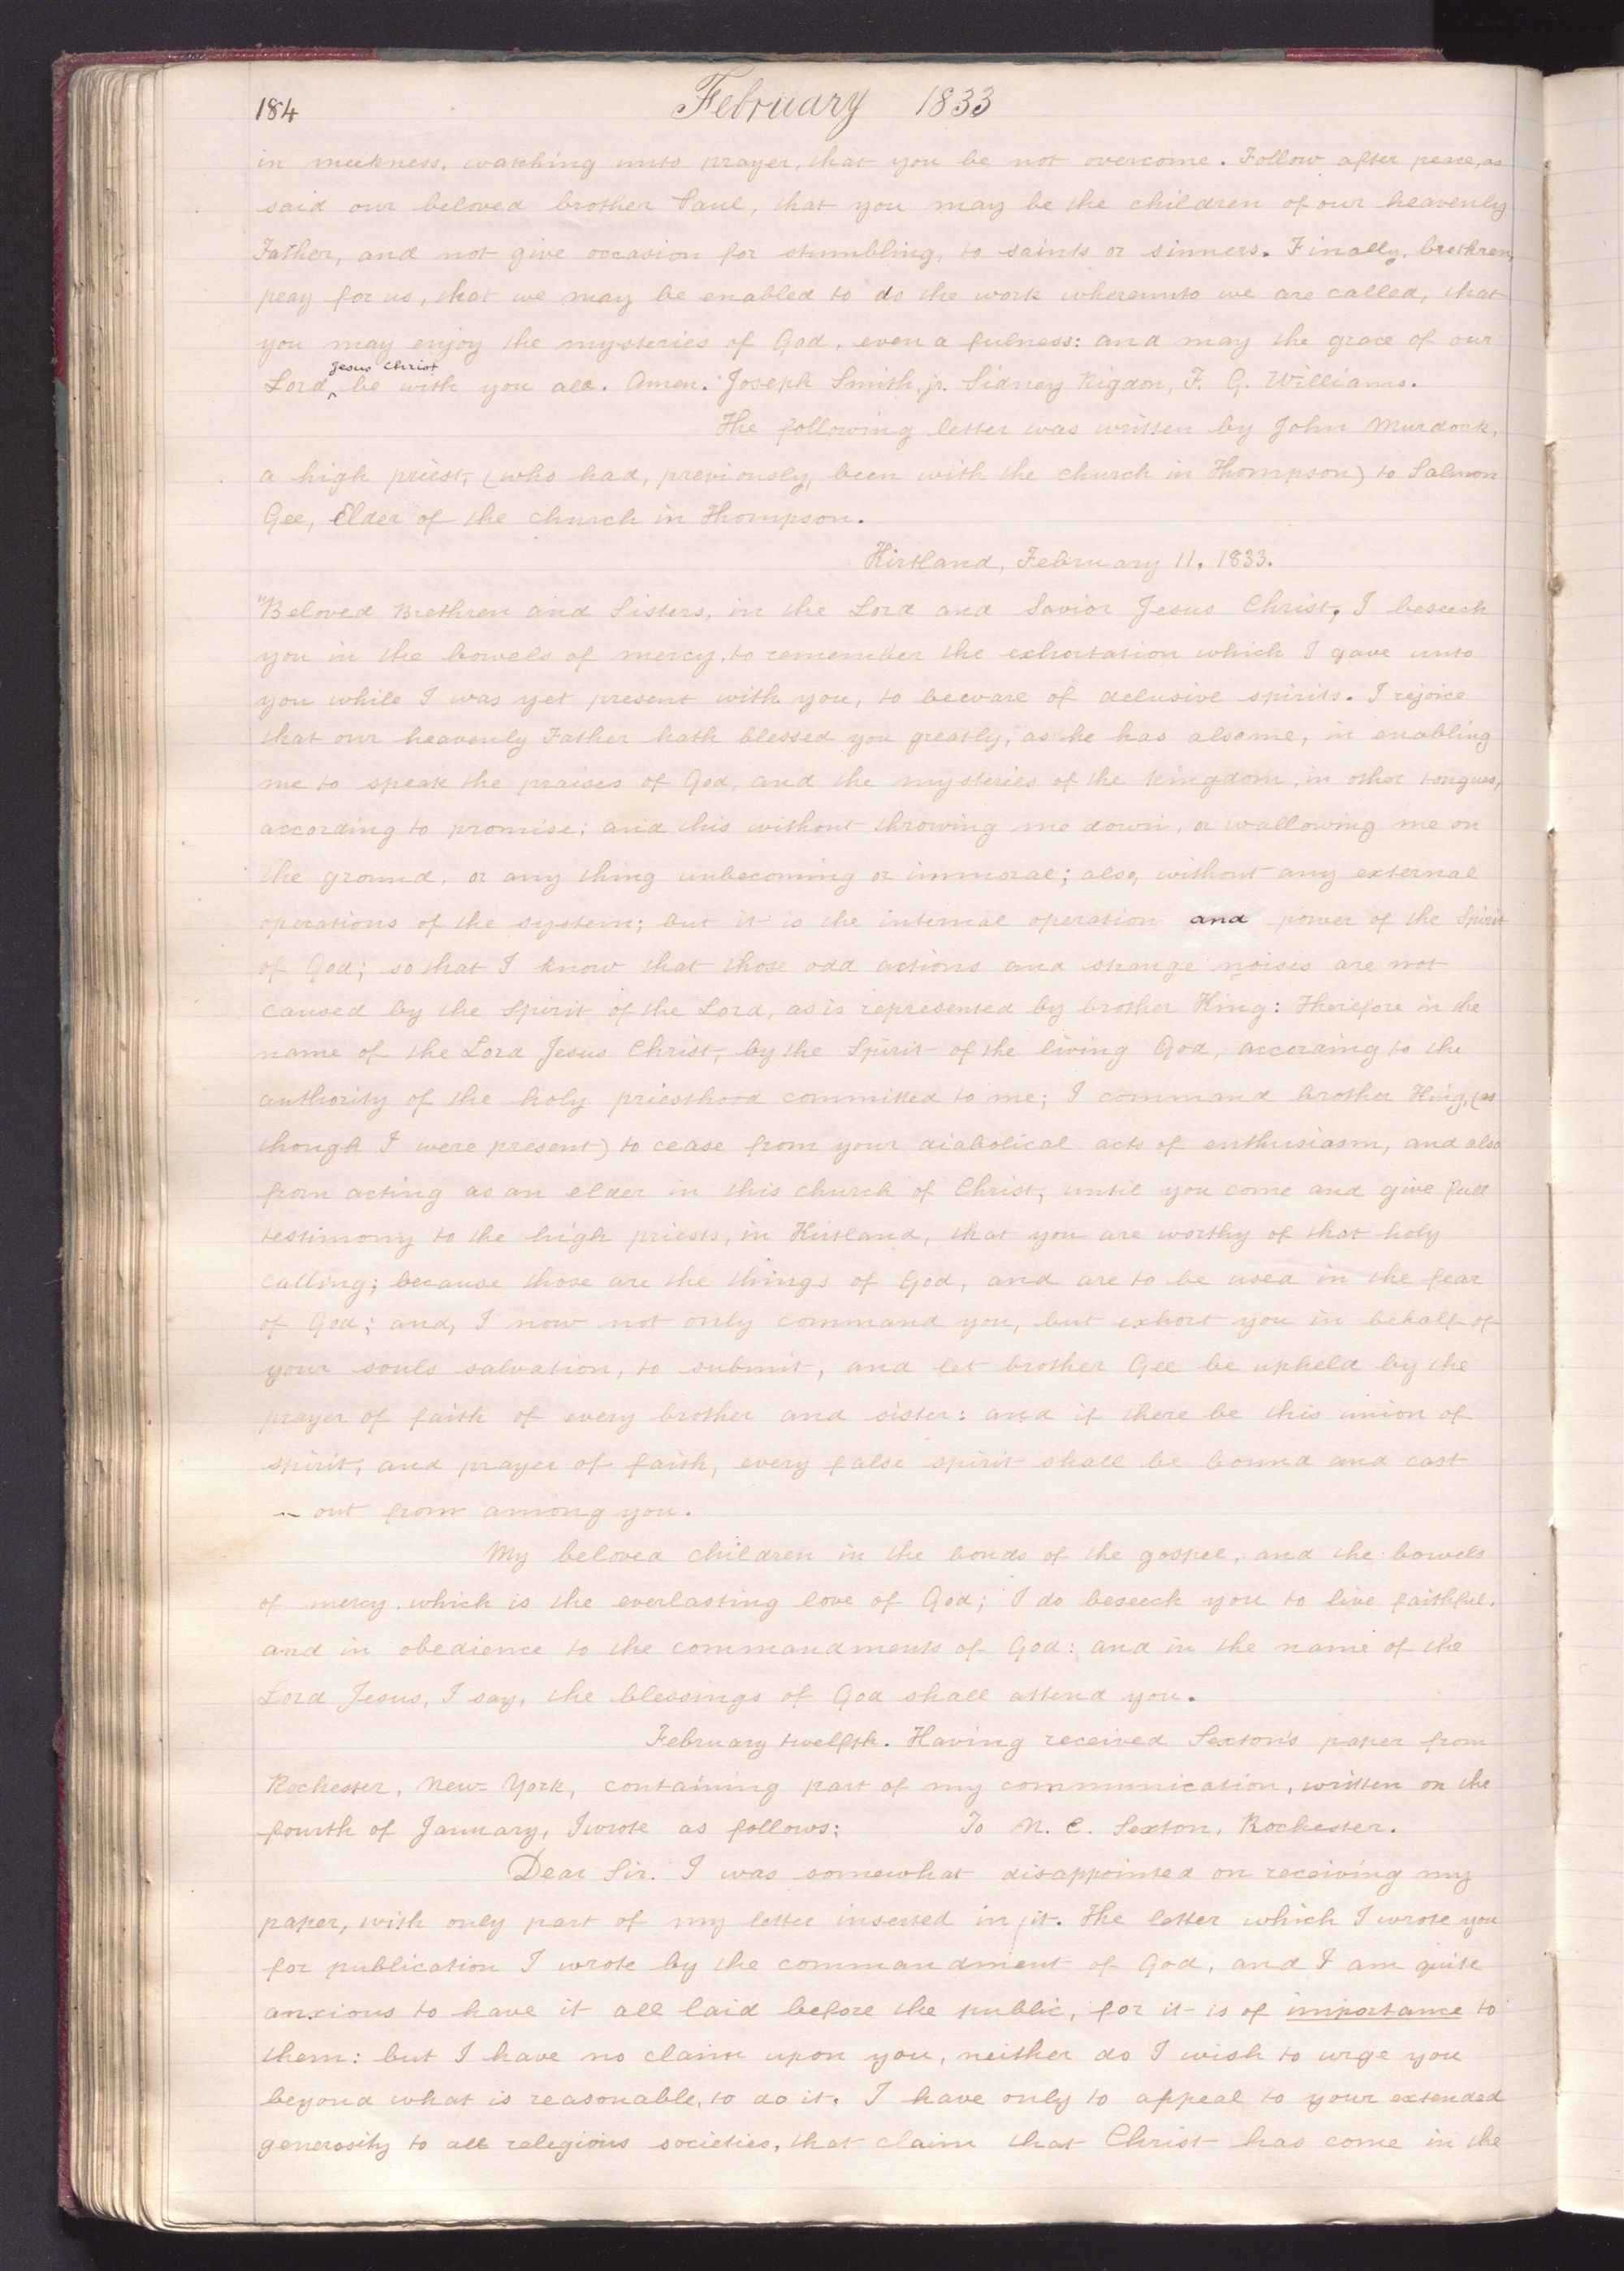 184
February 1833
in meekness, watching unto prayer, that you be not overcome. Follow after peace, as
said our beloved brother Paul, that you may be the children of our heavenly
Father, and not give occasion for stumbling, to saints or sinners. Finally, brethren,
pray for us, that we may be enabled to do the work whereunto we are called, that
you may enjoy the mysteries of God, even a fulness: and may the grace of our
Jesus Christ
Lord ^ be with you all. Amen. Joseph Smith, jr. Sidney Rigdon, F. G. Williams.
The following letter was written by John Murdock,
a high priest, (who had, previously, been with the church in Thompson) to Salmon
Gee, Elder of the church in Thompson.
Kirtland, February 11, 1833.
"Beloved Brethren and Sisters, in the Lord and Savior Jesus Christ, I beseech
you in the bowels of mercy, to remember the exhortation which I gave unto
you while I was yet present with you, to beware of delusive spirits. I rejoice
that our heavenly Father hath blessed you greatly, as he has also me, in enabling
me to speak the praises of God, and the mysteries of the kingdom, in other tongues,
according to promise; and this without throwing me down, or wallowing me on
the ground, or any thing unbecoming or immoral; also, without any external
operations of the system; but it is the internal operation and power of the Spirit
of God; so that I know that those odd actions and strange noises are not
caused by the Spirit of the Lord, as is represented by brother King: Therefore in the
name of the Lord Jesus Christ, by the Spirit of the living God, according to the
authority of the holy priesthood committed to me; I command brother King, (as
though I were present) to cease from your diabolical acts of enthusiasm, and also
from acting as an elder in this church of Christ, until you come and give full
testimony to the high priests, in Kirtland, that you are worthy of that holy
calling; because those are the things of God, and are to be used in the fear
of God; and, I now not only command you, but exhort you in behalf of
your souls salvation, to submit, and let brother Gee be upheld by the
prayer of faith of every brother and sister: and if there be this union of
spirit, and prayer of faith, every false spirit shall be bound and cast
out from among you.
My beloved children in the bonds of the gospel, and the bowels
of mercy which is the everlasting love of God; I do beseech you to live faithful,
and in obedience to the commandments of God: and in the name of the
Lord Jesus, I say, the blessings of God shall attend you.
February twelfth. Having received Sexton's paper from
Rochester, New-York, containing part of my communication, written on the
fourth of January, I wrote as follows: To N. C. Sexton, Rochester.
Dear Sir. I was somewhat disappointed on receiving my
paper, with only part of my letter inserted in it. The letter which I wrote you
for publication I wrote by the commandment of God, and I am quite
anxious to have it all laid before the public, for it is of importance to
them: but I have no claim upon you, neither do I wish to urge you
beyond what is reasonable, to do it. I have only to appeal to your extended
generosity to all relegious societies, that claim that Christ has come in the